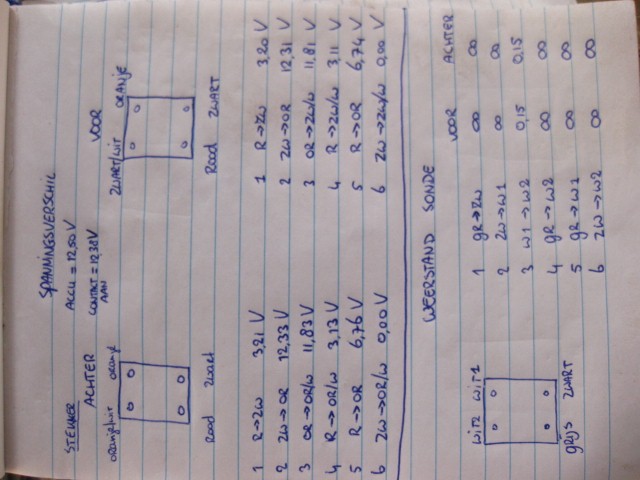 SPANNINGSVERSCHIL
STEKKER
ACCU = 12,50 V
CONTACT = 12,38 V
AAN
ACHTER
oranje/wit oranje
Rood zwart
VOOR
ZWART/WIT ORANJE
Rood ZWART
1 R→ZW 3,21 V
2 ZW→OR 12,33 V
3 OR→OR/W 11,83 V
4 R→OR/W 3,13 V
5 R→OR 6,76 V
6 ZW→OR/W 0,00 V
1 R→ZW 3,20 V
2 ZW→OR 12,31 V
3 OR→ZW/W 11,81 V
4 R→ZW/W 3,11 V
5 R→OR 6,74 V
6 ZW→ZW/W 0,00 V
WEERSTAND SONDE
wit2 wit1
grijs ZWART
VOOR ACHTER
1 gR→ZW ∞ ∞
2 ZW→W1 ∞ ∞
3 W1→W2 0,15 0,15
4 gR→W2 ∞ ∞
5 gR→W1 ∞ ∞
6 ZW→W2 ∞ ∞